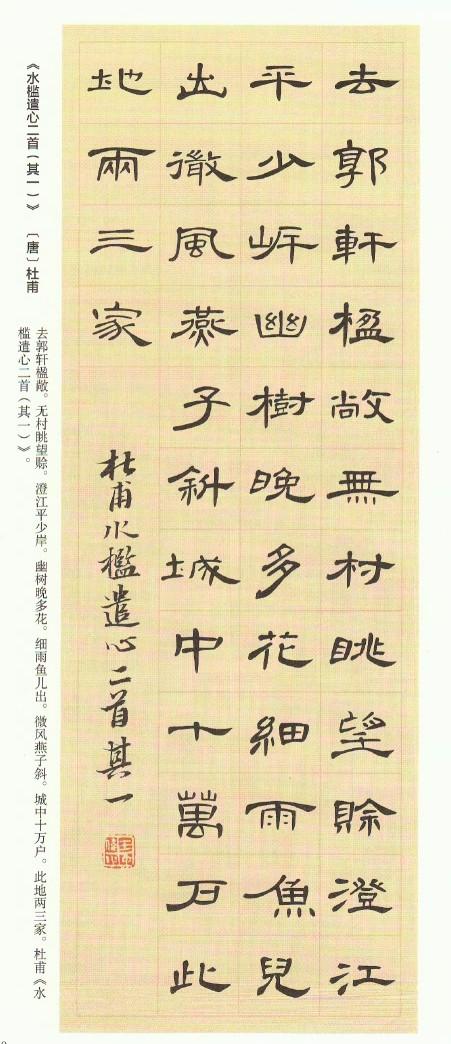 《水槛遣心二首（其一）》 〔唐〕杜甫
去郭軒楹敞無村眺望賒澄江
平少岸幽樹晚多花細雨魚兒
出微風燕子斜城中十萬戶此
地兩三家
杜甫水檻遣心二首其一
去郭轩楹敞。无村眺望赊。澄江平少岸。幽树晚多花。细雨鱼儿出。微风燕子斜。城中十万户。此地两三家。杜甫《水
槛遣心二首（其一）》。